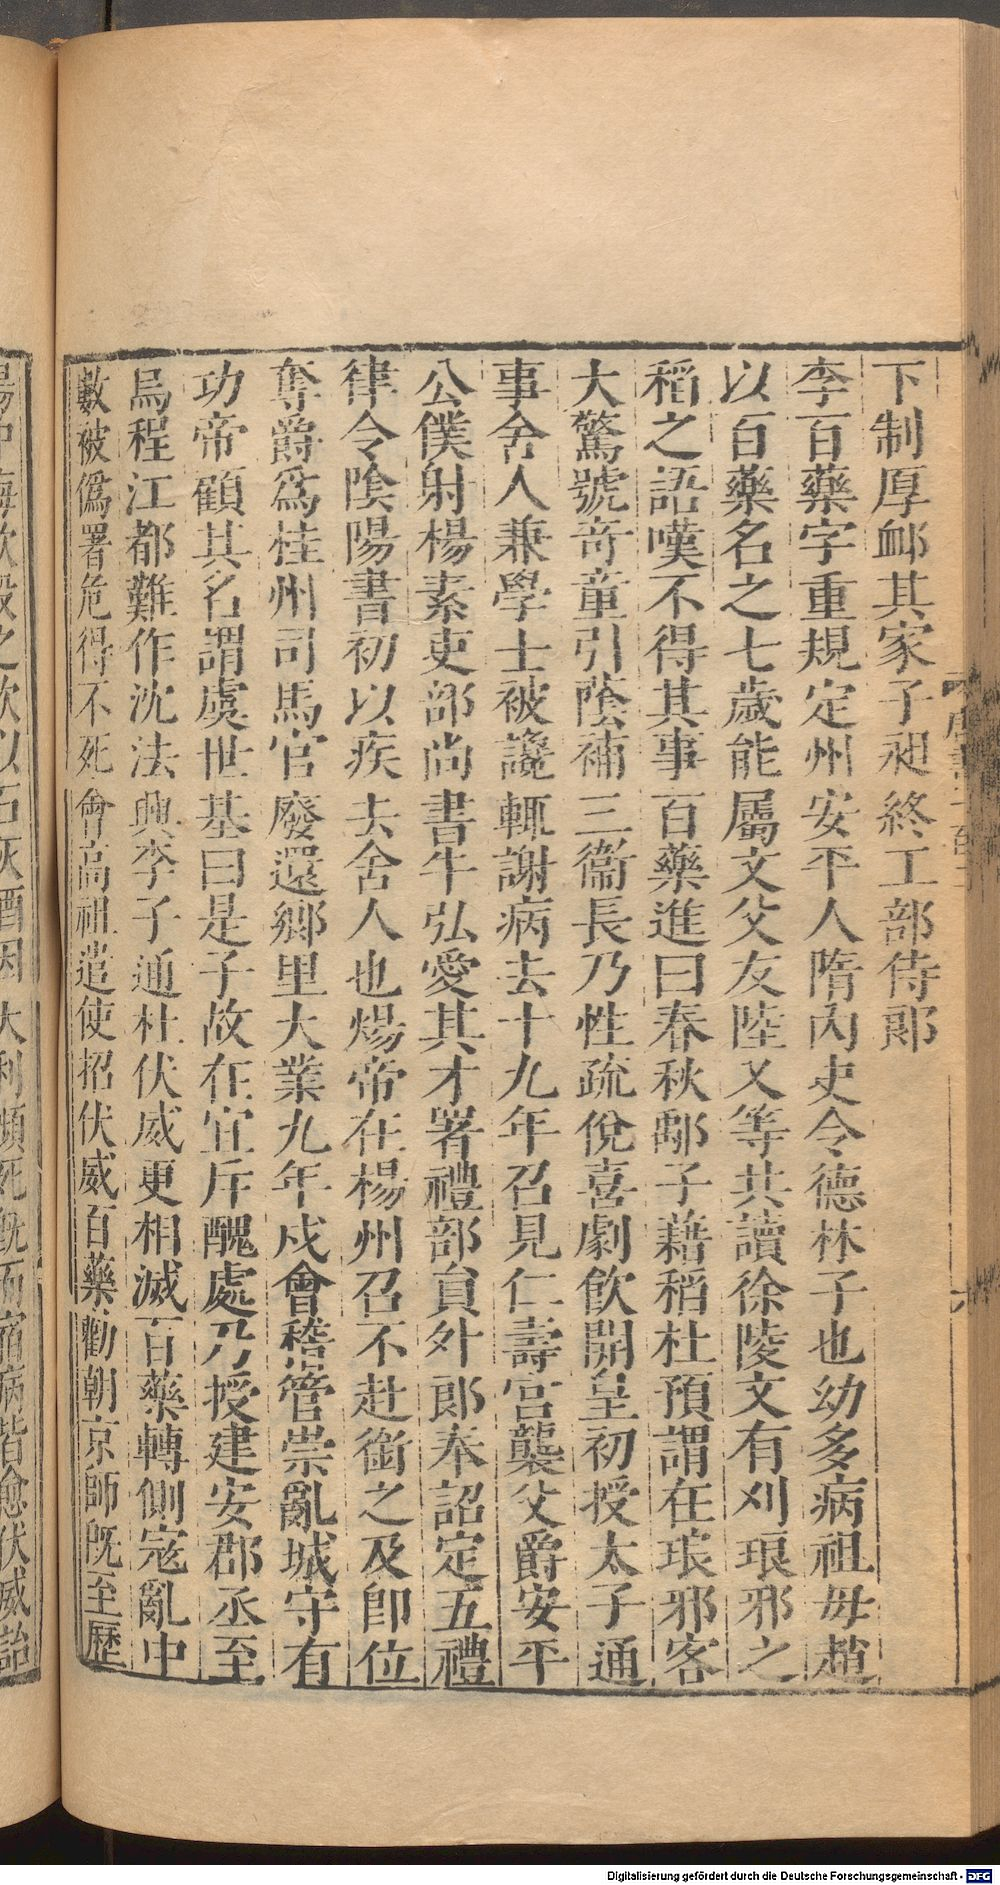 下制厚䘏其家子昶終工部侍郎
李百藥字重規定州安平人隋内史令德林子也幼多病祖母趙
以百藥名之七歲能屬文父友陸乂等共讀徐陵文有刈琅邪之
稻之語嘆不得其事百藥進曰春秋鄅子藉稻杜預謂在琅邪客
大驚號奇童引蔭補三衞長乃性疏侻喜劇飲開皇初授太子通
事舍人兼學士被讒輒謝病去十九年召見仁壽宮襲父爵安平
公僕射楊素吏部尚書牛弘愛其才署禮部員外郎奉詔定五禮
律令陰陽書初以疾去舍人也煬帝在楊州召不赴銜之及卽位
奪爵爲桂州司馬官廢還鄉里大業九年戍會稽管崇亂城守有
功帝顧其名謂虞世基曰是子故在宜斥醜處乃授建安郡丞至
烏程江都難作沈法興李子通杜伏威更相滅百藥轉側寇亂中
數被僞署危得不死會高祖遣使招伏威百藥勸朝京師旣至歷
大利瀕死旣而宿病皆愈伏威詒
Digitalisierung gefördert durch die Deutsche Forschungsgemeinschaft - DFG